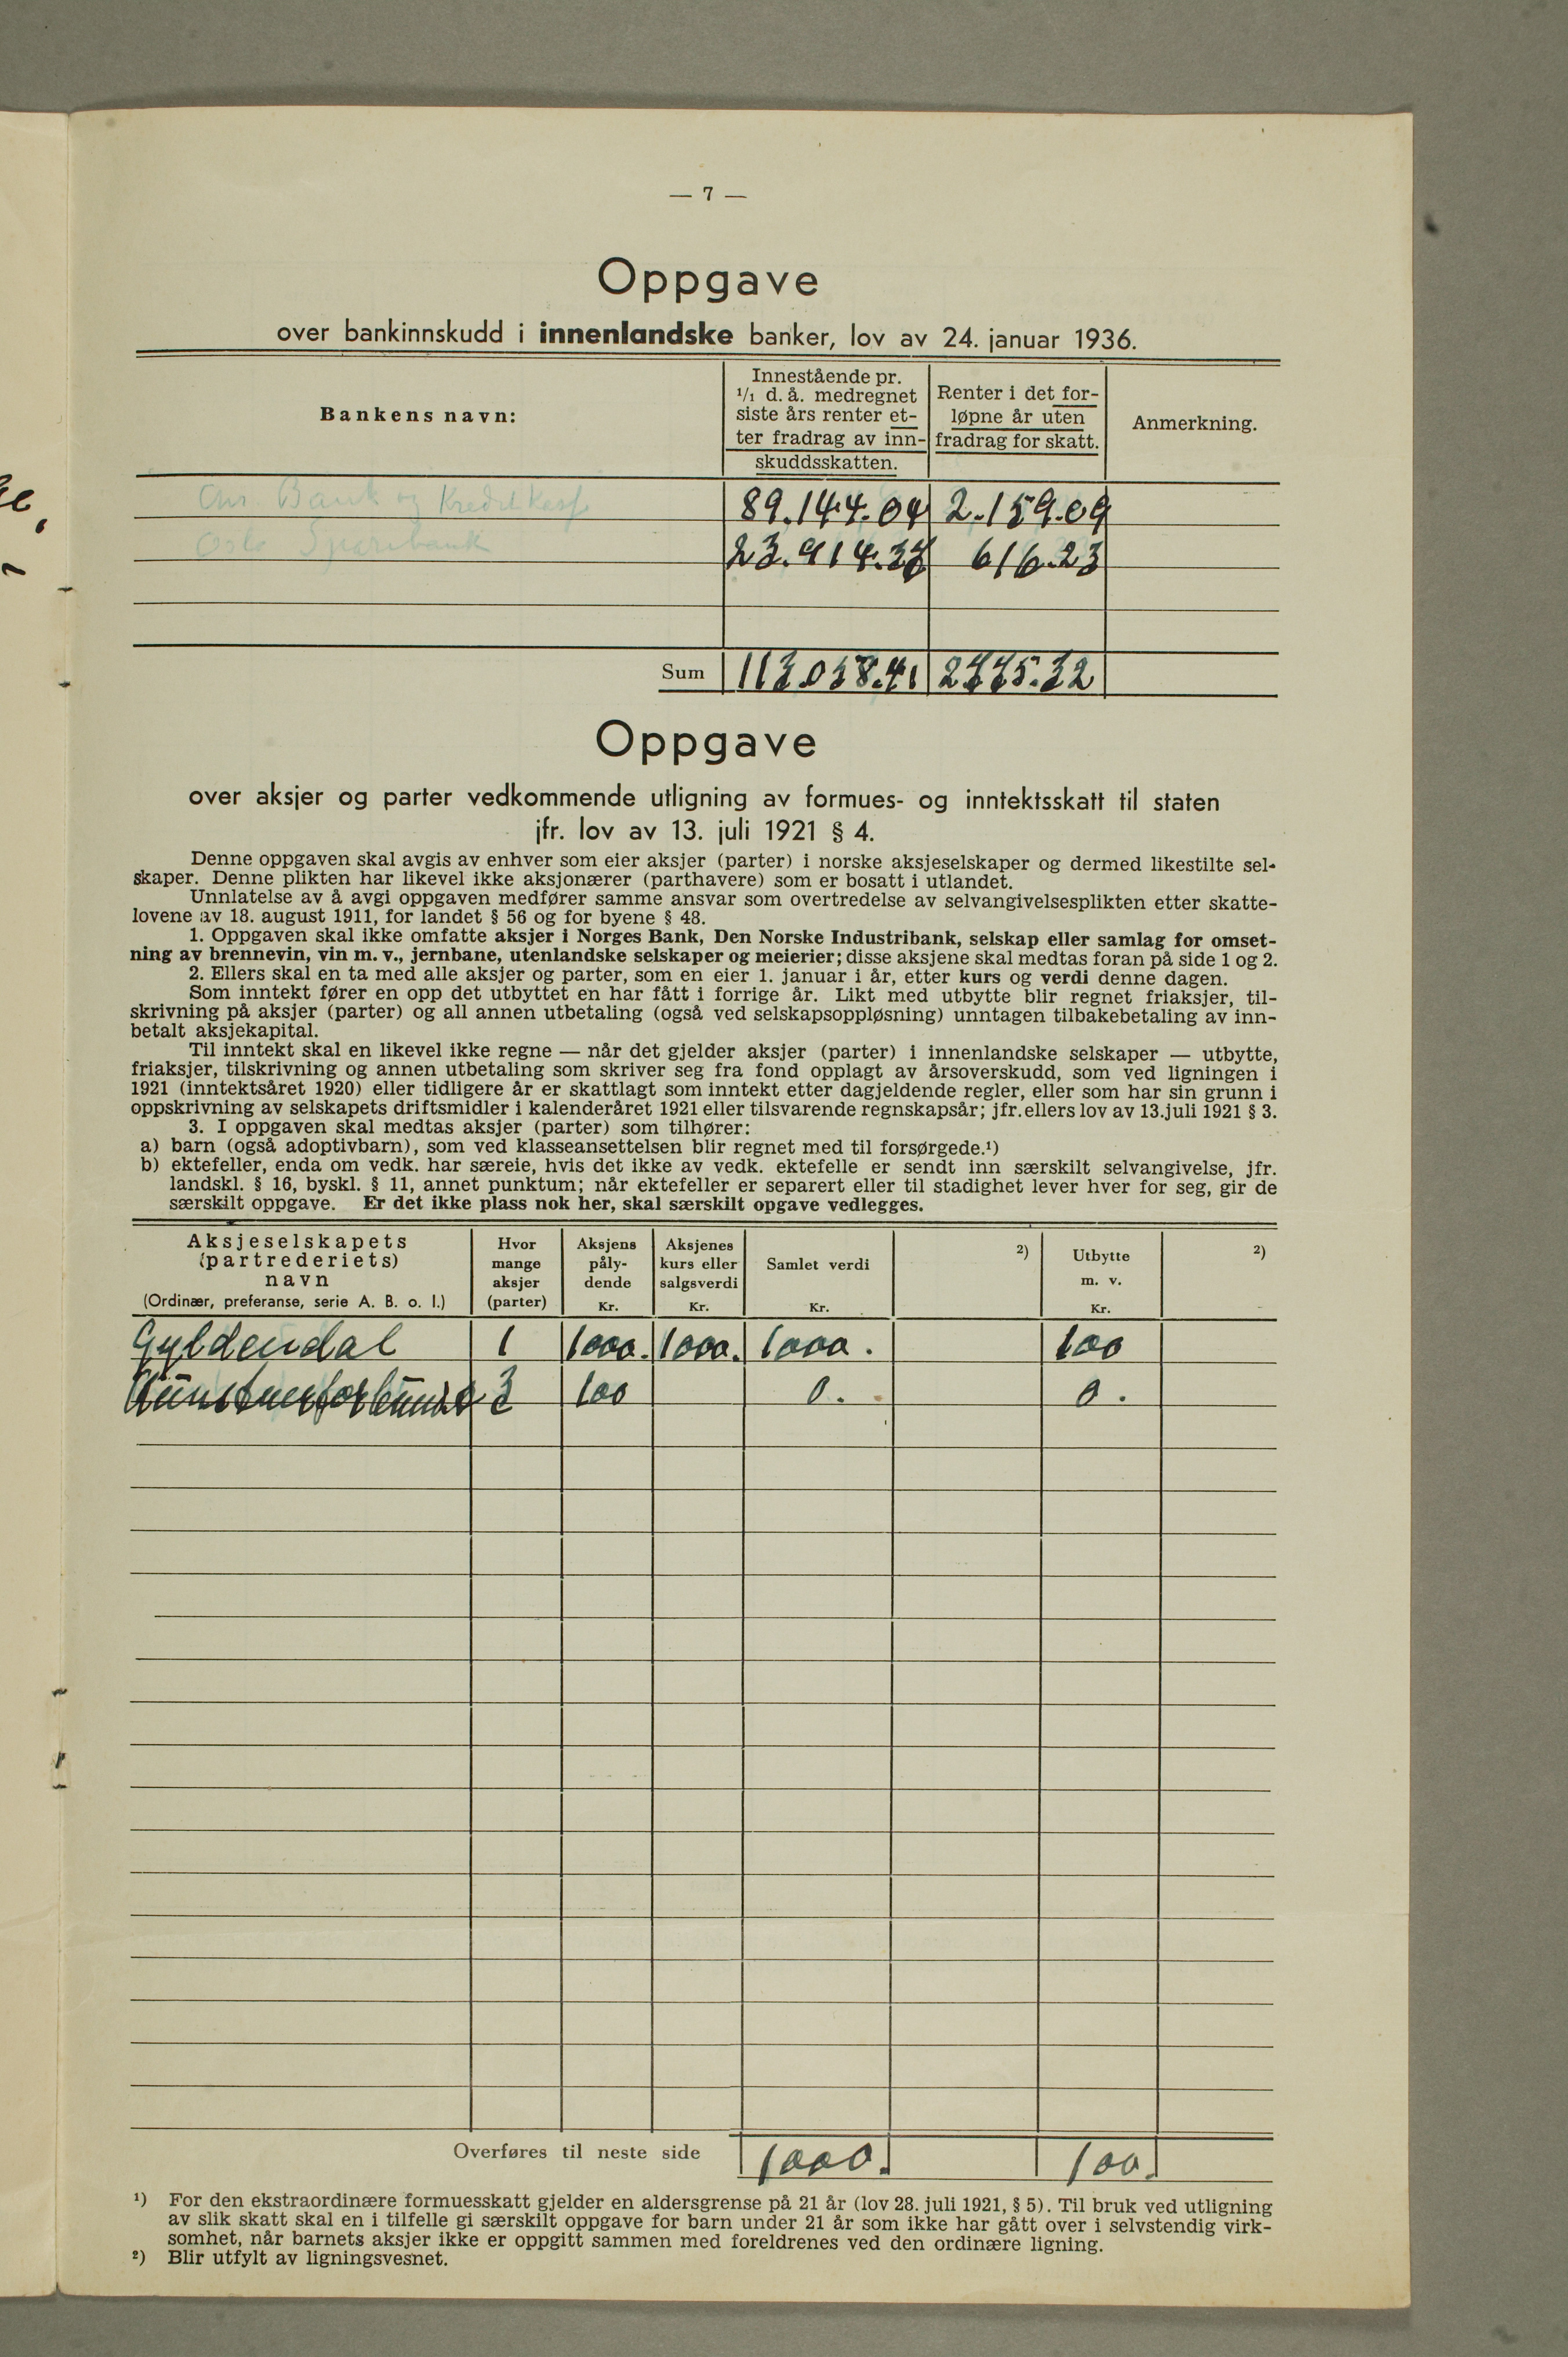 — 7 —
Oppgave
over bankinnskudd i innenlandske banker, lov av 24. januar 1936.
Bankens navn:
Innestående pr.
1/1 d. å. medregnet
siste års renter et-
ter fradrag av inn-
skuddsskatten.
Renter i det for-
løpne år uten
fradrag for skatt.
Anmerkning.
Chr. Bank og Kreditkasse 89.144.04 2.159.09
Oslo Sparebank 23.914.37 616.23
Sum 113.058.41 2775.32
Oppgave
over aksjer og parter vedkommende utligning av formues- og inntektsskatt til staten
jfr. lov av 13. juli 1921 § 4.
Denne oppgaven skal avgis av enhver som eier aksjer (parter) i norske aksjeselskaper og dermed likestilte sel-
skaper. Denne plikten har likevel ikke aksjonærer (parthavere) som er bosatt i utlandet.
Unnlatelse av å avgi oppgaven medfører samme ansvar som overtredelse av selvangivelsesplikten etter skatte-
lovene av 18. august 1911, for landet § 56 og for byene § 48.
1. Oppgaven skal ikke omfatte aksjer i Norges Bank, Den Norske Industribank, selskap eller samlag for omset-
ning av brennevin, vin m. v., jernbane, utenlandske selskaper og meierier; disse aksjene skal medtas foran på side 1 og 2.
2. Ellers skal en ta med alle aksjer og parter, som en eier 1. januar i år, etter kurs og verdi denne dagen.
Som inntekt fører en opp det utbyttet en har fått i forrige år. Likt med utbytte blir regnet friaksjer, til-
skrivning på aksjer (parter) og all annen utbetaling (også ved selskapsoppløsning) unntagen tilbakebetaling av inn-
betalt aksjekapital.
Til inntekt skal en likevel ikke regne — når det gjelder aksjer (parter) i innenlandske selskaper — utbytte,
friaksjer, tilskrivning og annen utbetaling som skriver seg fra fond opplagt av årsoverskudd, som ved ligningen i
1921 (inntektsåret 1920) eller tidligere år er skattlagt som inntekt etter dagjeldende regler, eller som har sin grunn i
oppskrivning av selskapets driftsmidler i kalenderåret 1921 eller tilsvarende regnskapsår; jfr. ellers lov av 13. juli 1921 § 3.
3. I oppgaven skal medtas aksjer (parter) som tilhører:
a) barn (også adoptivbarn), som ved klasseansettelsen blir regnet med til forsørgede.¹)
b) ektefeller, enda om vedk. har særeie, hvis det ikke av vedk. ektefelle er sendt inn særskilt selvangivelse, jfr.
landskl. § 16, byskl. § 11, annet punktum; når ektefeller er separert eller til stadighet lever hver for seg, gir de
særskilt oppgave. Er det ikke plass nok her, skal særskilt opgave vedlegges.
Aksjeselskapets
(partrederiets)
navn
(Ordinær, preferanse, serie A. B. o. l.)
Hvor
mange
aksjer
(parter)
Aksjens
påly-
dende
Kr.
Aksjenes
kurs eller
salgsverdi
Kr.
Samlet verdi
Kr.
²)
Utbytte
m. v.
Kr.
²)
Gyldendal 1 1000. 1000. 1000. 100
Kunstnerforbundet 3 100 0. 0.
Overføres til neste side 1000. 100.
¹) For den ekstraordinære formuesskatt gjelder en aldersgrense på 21 år (lov 28. juli 1921, § 5). Til bruk ved utligning
av slik skatt skal en i tilfelle gi særskilt oppgave for barn under 21 år som ikke har gått over i selvstendig virk-
somhet, når barnets aksjer ikke er oppgitt sammen med foreldrenes ved den ordinære ligning.
²) Blir utfylt av ligningsvesnet.